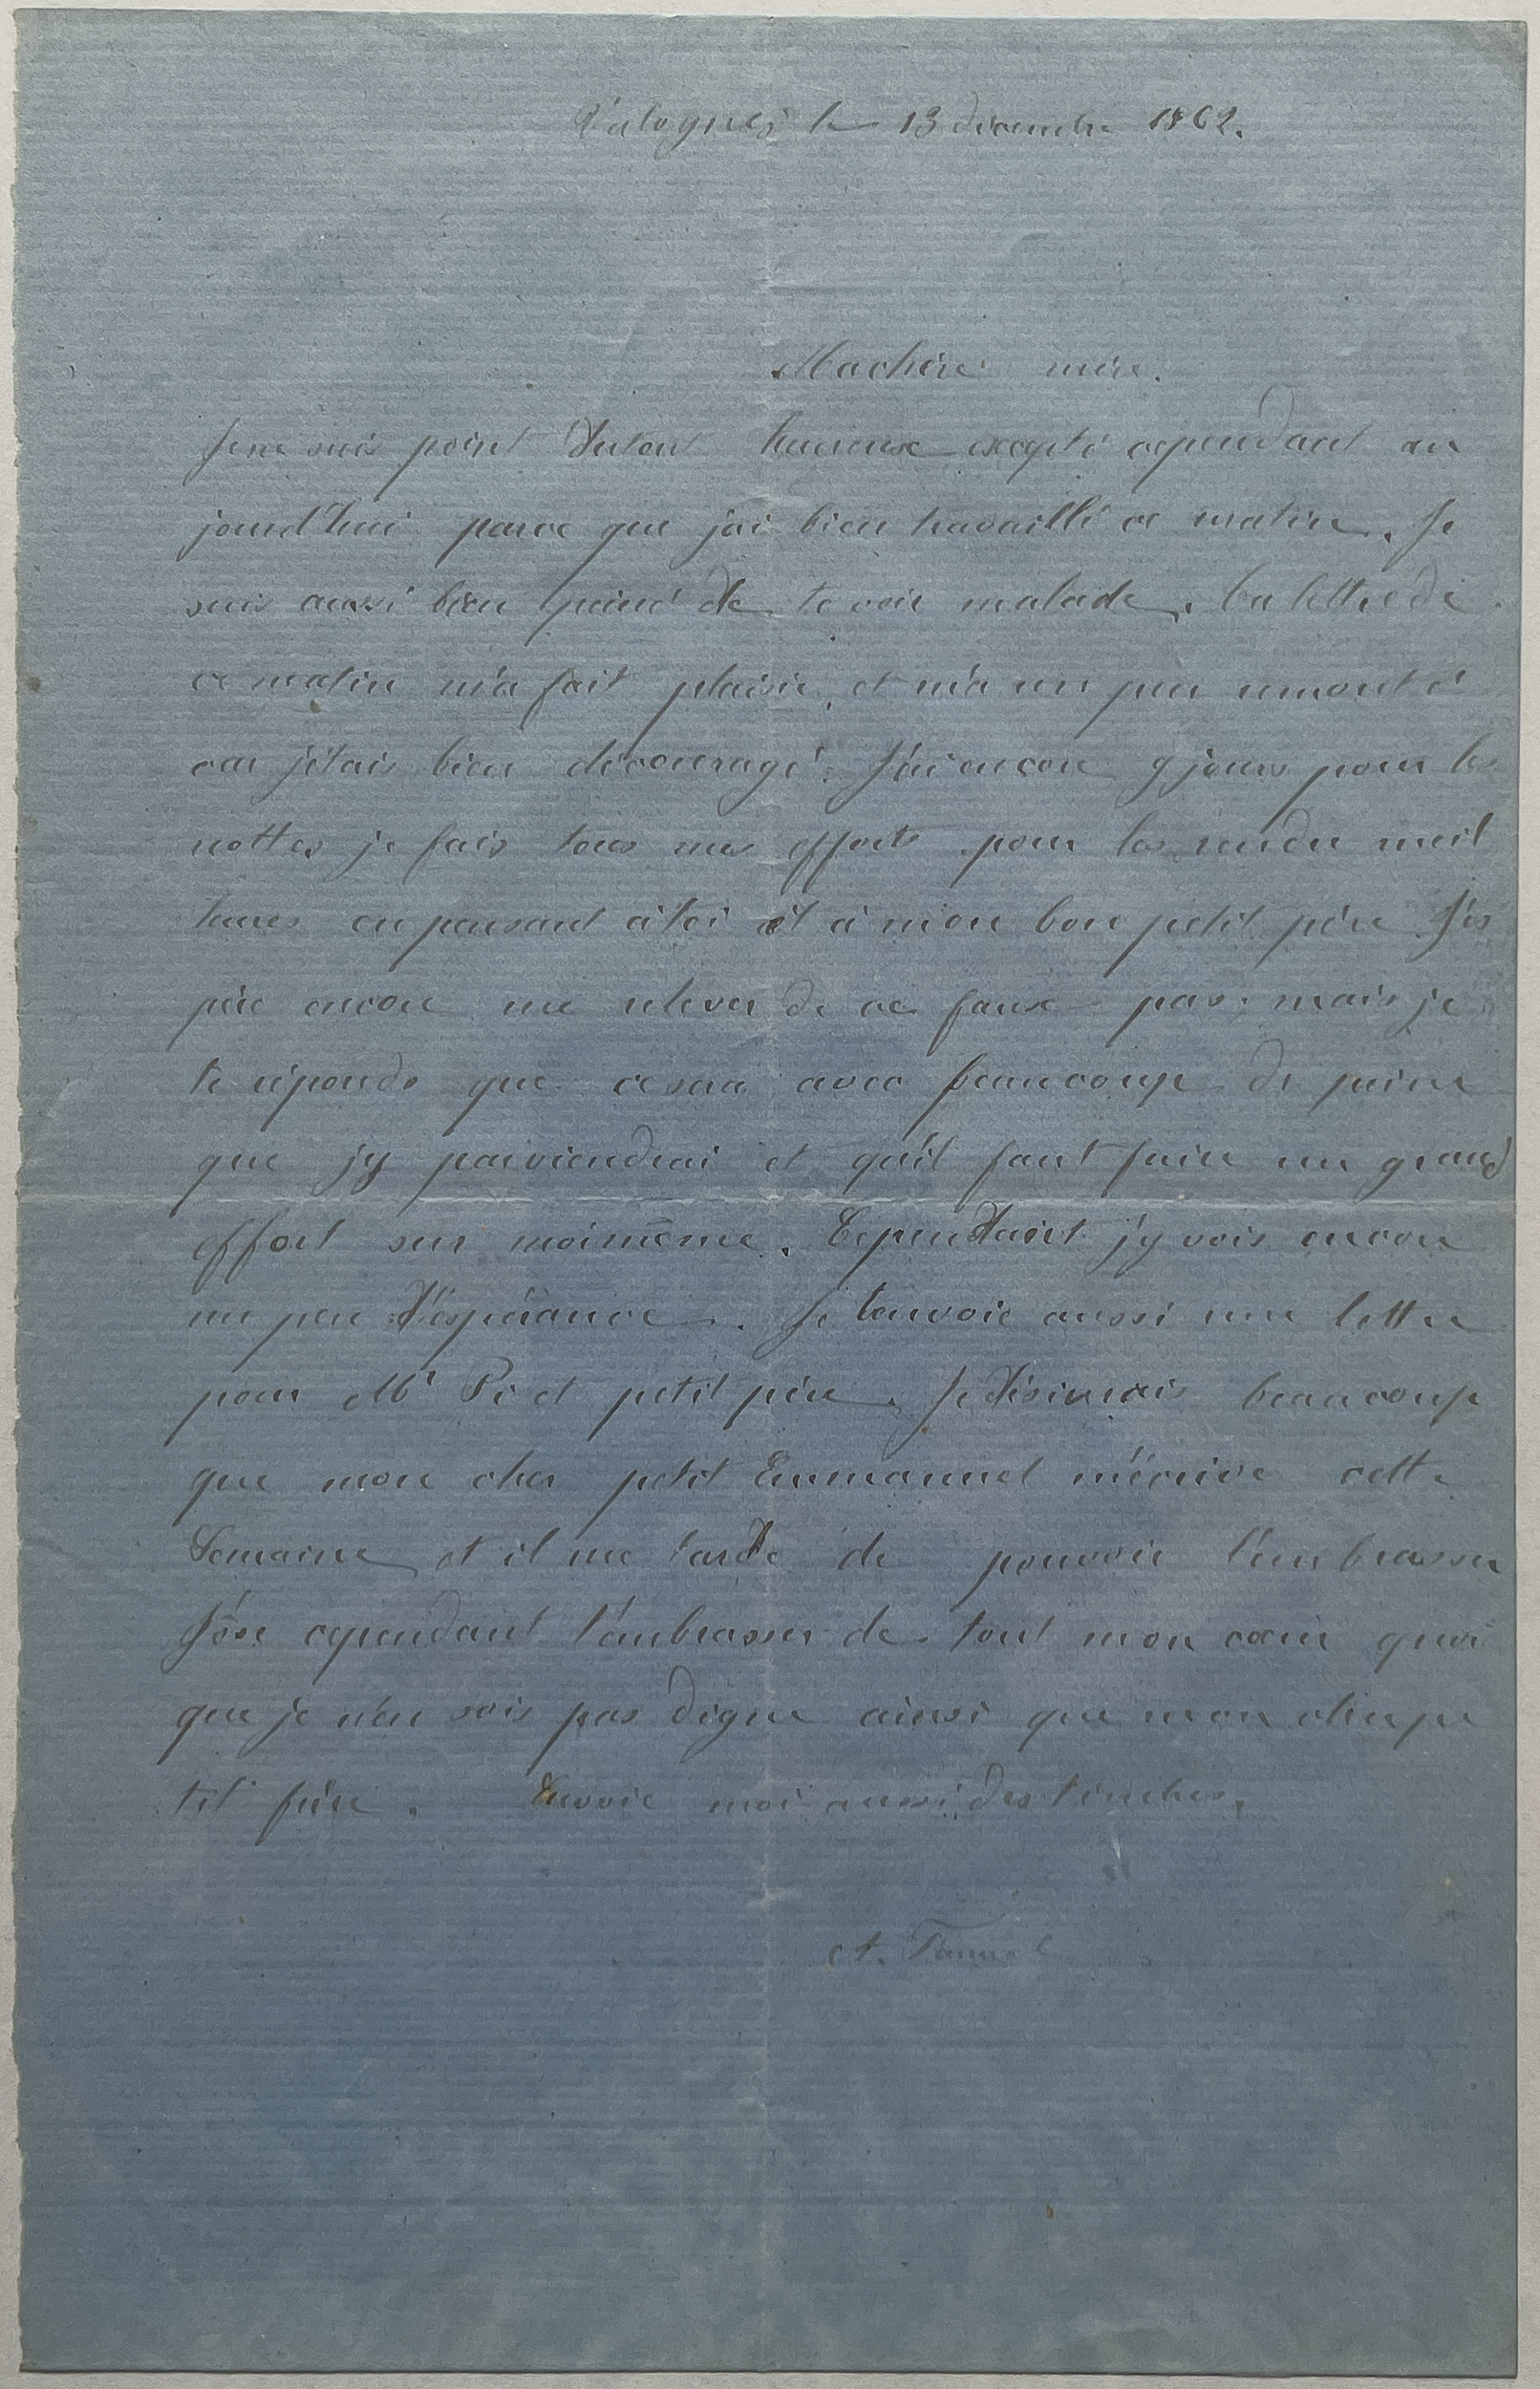 Valognes le 13 décembre 1862.
Machère mère.
Jene suis point dutout heureux excepté cependant au
jourd'hui parce que jai bien travaillé ce matin. Je
suis aussi bien peiné de te voir malade. ta lettre de
ce matin m'a fait plaisir, et m'a un peu remonté
car jétais bien découragé. J'ai encore 9 jours pour les
nottes je fais tous mes efforts pour les rendre meil
leures en pensant à toi et à mon bon petit père J'es
père encore me relever de ce faux pas; mais je
te réponds que cesera avec beaucoup de peine
que jy parviendrai et qu'il faut faire un grand
effort sur moimême. Cependant j'y vois encore
un peu d'éspérance. Je tenvoie aussi une lettre
pour Mr Pi et petit père. Je désirerais beaucoup
que mon cher petit Emmanuel m'écrive cette
Semaine et il me tarde de pouvoir l'embrasser
J'ose cependant t'embrasser de tout mon cœur quoi
que je n'en sois pas digne ainsi que mon cher pe
tit frère. Envoie moi aussi des timbres.